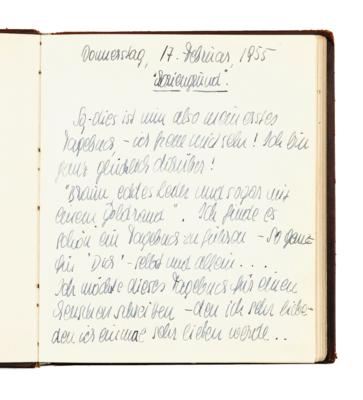 Donnerstag, 17. Februar, 1955
So - dies ist nun also mein erstes
Tagebuch - ich freue mich sehr! Ich bin
ganz glücklich darüber!
"Braun, echtes Leder und sogar mit
einem Goldrand". Ich finde es
schön ein Tagebuch zu führen - so ganz
für 'Dich' - selbst und allein....
Ich möchte dieses Tagebuch für einen
Menschen schreiben - den ich sehr liebe -
den ich einmal sehr lieben werde...